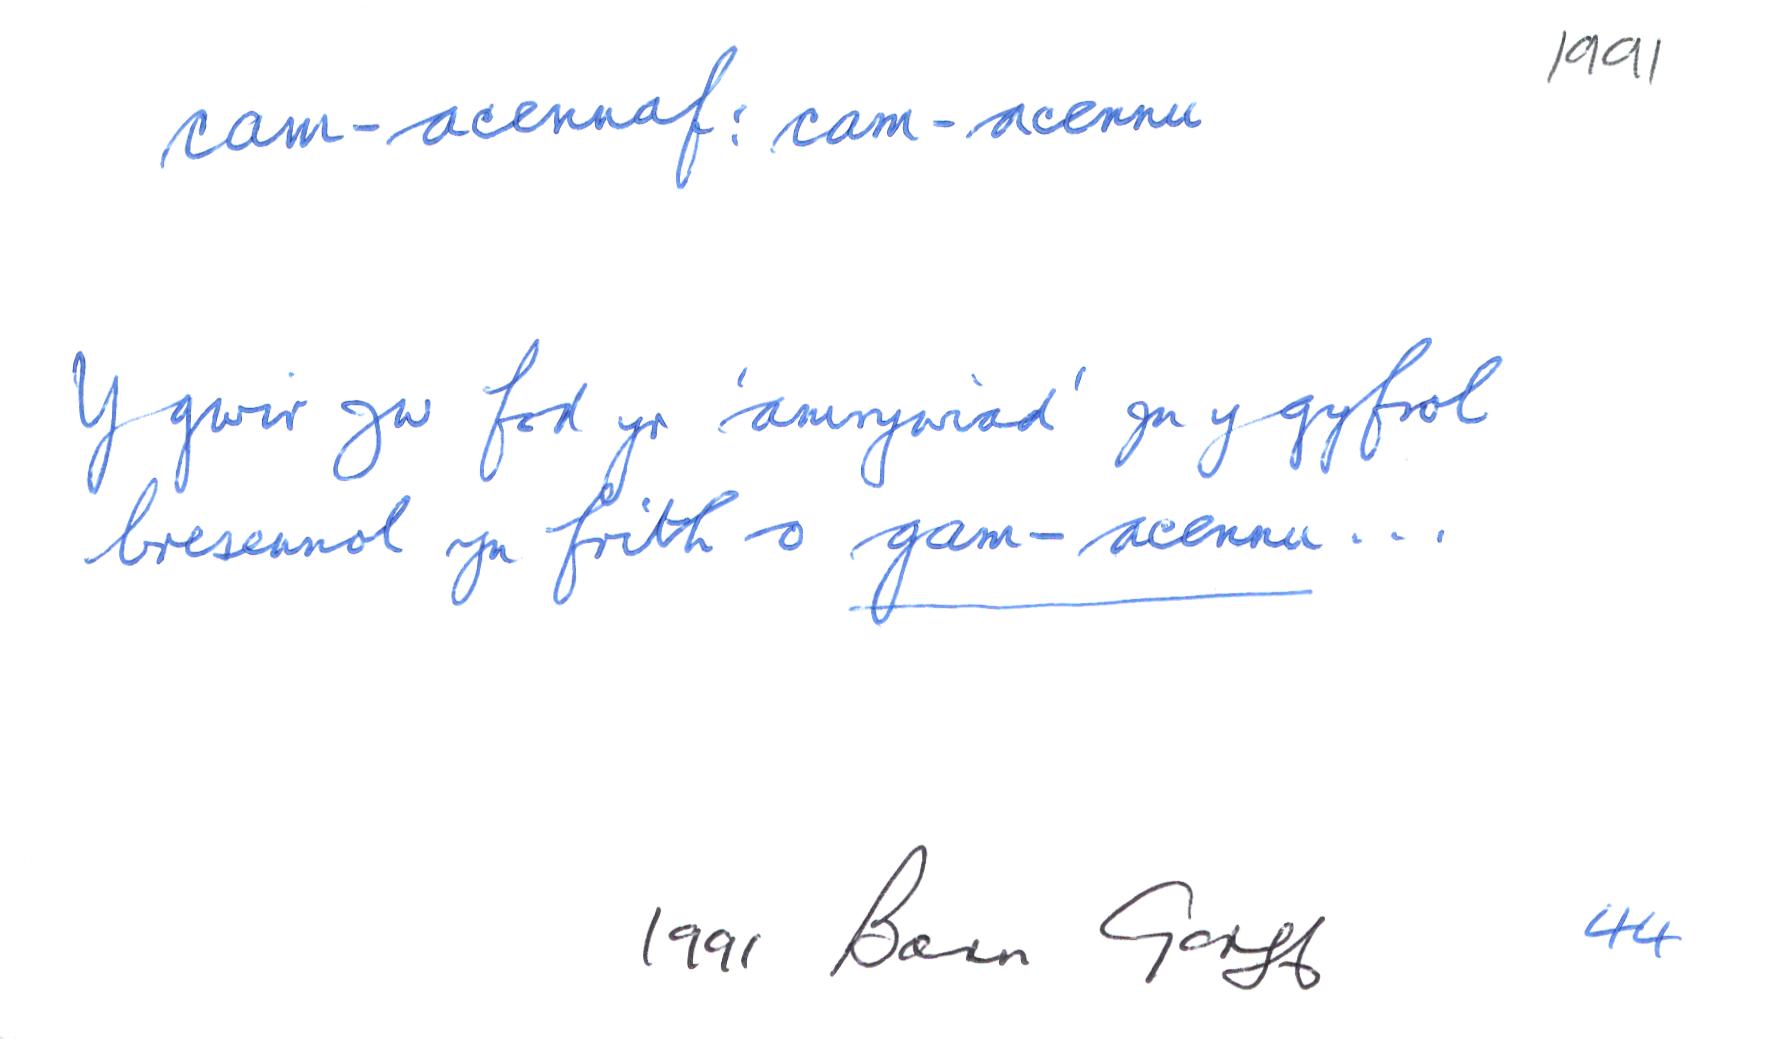 1991
cam-acennaf: cam-acennu
Y gwir yw fod yr 'amrywiad' yn y gyfrol
bresennol yn frith o gam-acennu...
1991 Barn Gorff 44